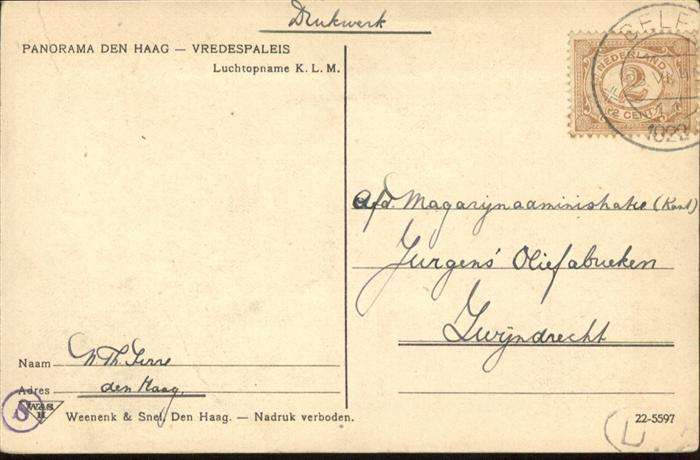 Drukwerk
PANORAMA DEN HAAG — VREDESPALEIS
Luchtopname K. L. M.
NEDERLAND
2
2 CENT
Afd. Magazijnadministratie (Kant)
Jurgens' Oliefabrieken
Zwijndrecht
Naam
Adres den Haag.
Weenenk & Snel, Den Haag. — Nadruk verboden.
22-5597